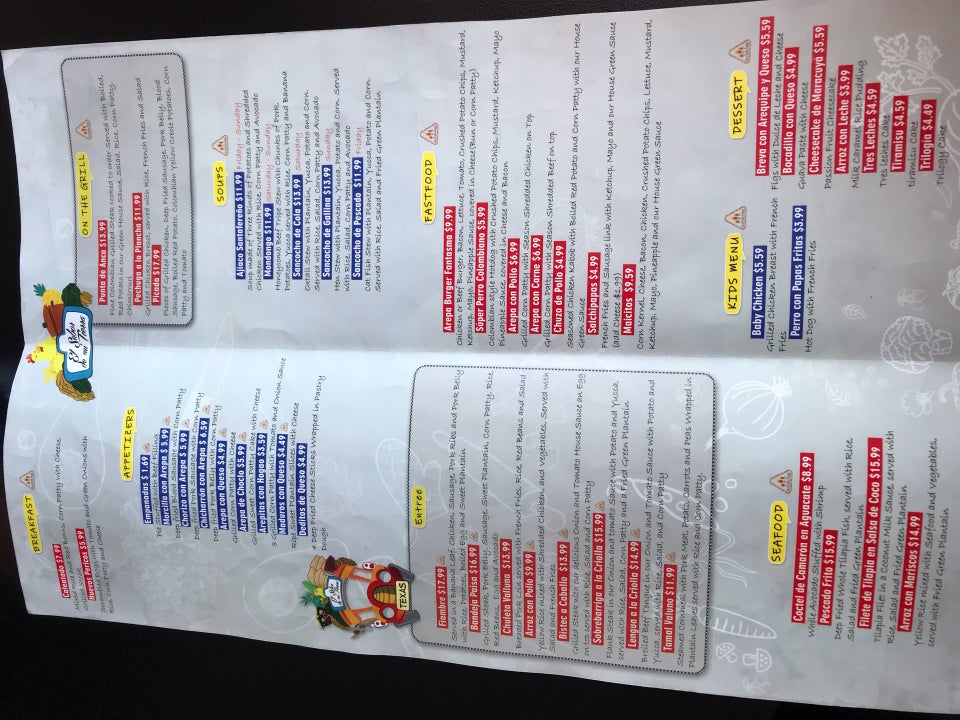 BREAKFAST
Calentado $9.99
Huevos Pericos $5.99
Scrambled Eggs with Tomato and Green Onions with
Rice, Corn Patty and Cheese
APPETIZERS
Empanadas $1.69
Morcilla con Arepa $ 5.99
Chorizo con Arepa $ 5.99
Deep Fried Sausage served with Corn Patty
Chicharrón con Arepa $ 6.59
Deep Fried Pork Belly with Corn Patty
Arepa con Queso $4.99
Grilled Corn Patty with Cheese
Arepa de Choclo $5.99
Arepitas con Hogao $3.59
3 Grilled Corn Patty with Tomato and Onion Sauce
Maduros con Queso $4.49
Ripe Plantain Slices with Cheese
Deditos de Queso $4.99
4 Deep Fried Cheese Sticks Wrapped in Pastry
Dough
TEXAS
Entree
Fiambre $17.99
Served in a Banana Leaf, Chicken, Sausage, Pork Ribs and Pork Belly
with Rice, Potatoes, Boiled Egg and Sweet Plantain
Bandeja Paisa $16.99
Grilled Steak, Pork Belly, Sausage, Sweet Plantain, Corn Patty, Rice,
Red Beans, Egg and Avocado
Chuleta Valluna $13.99
Breaded Pork Loin, served with French Fries, Rice, Red Beans and Salad
Arroz con Pollo $9.99
Yellow Rice mixed with Shredded Chicken, and vegetables, Served with
Salad and French Fries
Bistec a Caballo $13.99
Grilled Steak with our delicious Onion and Tomato House Sauce an Egg
on top served with Rice, Salad and Corn Patty
Sobrebarriga a la Criolla $15.99
Flank Steak in our Onion and tomato Sauce with Potato and Yucca,
served with Rice, Salad, Corn Patty and a Fried Green Plantain
Lengua a la Criolla $14.99
Broiled Beef Tongue in our Onion and Tomato Sauce with Potato and
Yucca, served with Rice, Salad, and Corn Patty
Tamal Valluno $11.99
Steamed Cornmeal with Pork Meat, Potato, Carrots and Peas Wrapped in
Plantain Leaves served with Rice and Corn Patty
SEAFOOD
Coctel de Camarón en Aguacate $8.99
Whole Avocado Stuffed with Shrimp
Pescado Frito $15.99
Deep Fried Whole Tilapia Fish, served with Rice,
Salad and Fried Green Plantain
Filete de Tilapia en Salsa de Coco $15.99
Tilapia Filet in a Coconut Milk Sauce, served with
Rice, Salad and Fried Green Plantain
Arroz con Mariscos $14.99
Yellow Rice mixed with Seafood and vegetables,
served with Fried green Plantain
El Sabor
de mi Tierra
ON THE GRILL
Punta de Anca $15.99
Red Potato in our Green House Sauce, Salad, Rice, Corn Patty
Chimichurri
Pechuga a la Plancha $11.99
Grilled Chicken Breast, served with Rice, French Fries and Salad
Picada $17.99
Pieces of Grilled Chicken, Deep Fried Sausage, Pork Belly, Blood
Sausage, Boiled Red Potato, Colombian Yellow Creole Potatoes, Corn
Patty and Tomato
SOUPS
Ajiaco Santafereño $11.99 Friday - Sunday
Soup made of Three Kinds of Potatoes and Shredded
Chicken, Served with Rice, Corn Patty and Avocado
Mondongo $11.99 Saturday - Sunday
Honeycomb Beef Tripe Stew with Chunks of Pork,
Potatoe, Yucca served with Rice, Corn Patty and Banana
Sancocho de Cola $13.99 Saturday
Oxtail Stew with Plantain, Yucca, Potato and Corn.
Served with Rice, Salad, Corn Patty and Avocado
Sancocho de Gallina $13.99 Sunday
Hen Stew with Plantain, Yucca, Potato and Corn. Served
with Rice, Salad, Corn Patty and Avocado
Sancocho de Pescado $11.99 Friday
Cat Fish Stew with Plantain, Yuca, Potato and Corn.
Served with Rice, Salad and Fried Green Plantain
FASTFOOD
Arepa Burger Fantasma $9.99
Chicken or Beef Burger, Bacon, Lettuce, Tomato, Crushed Potato Chips, Mustard,
Ketchup, Mayo, Pineapple Sauce, covered in Cheese(Bun or Corn Patty)
Súper Perro Colombiano $5.99
Colombian style Hotdog with Crushed Potato Chips, Mustard, Ketchup, Mayo
Pineapple Sauce, covered in Cheese and Bacon
Arepa con Pollo $6.99
Grilled Corn Patty with Season Shredded Chicken on Top
Arepa con Carne $6.99
Grilled Corn Patty with Season Shredded Beef on top
Chuzo de Pollo $4.99
Seasoned Chicken Kabob with Boiled Red Potato and Corn Patty with our House
Green Sauce
Salchipapas $4.99
French Fries and Sausage link with Ketchup, Mayo and our House Green Sauce
(add Cheese $1.99)
Maicitos $9.59
Corn Kernel, Cheese, Bacon, Chicken, Crushed Potato Chips, Lettuce, Mustard,
Ketchup, Mayo, Pineapple and our House Green Sauce
KIDS MENU
Baby Chicken $5.59
Grilled Chicken Breast with French
Fries
Perro con Papas Fritas $3.99
Hot Dog with French Fries
DESSERT
Breva con Arequipe y Queso $5.59
Figs with Dulce de Leche and Cheese
Bocadillo con Queso $4.99
Guava Paste with Cheese
Cheesecake de Maracuyá $5.59
Passion Fruit Cheesecake
Arroz con Leche $3.99
Milk Caramel Rice Pudding
Tres Leches $4.59
Tres Leches Cake
Tiramisu $4.59
tiramisu Cake
Trilogia $4.49
Trilogy Cake